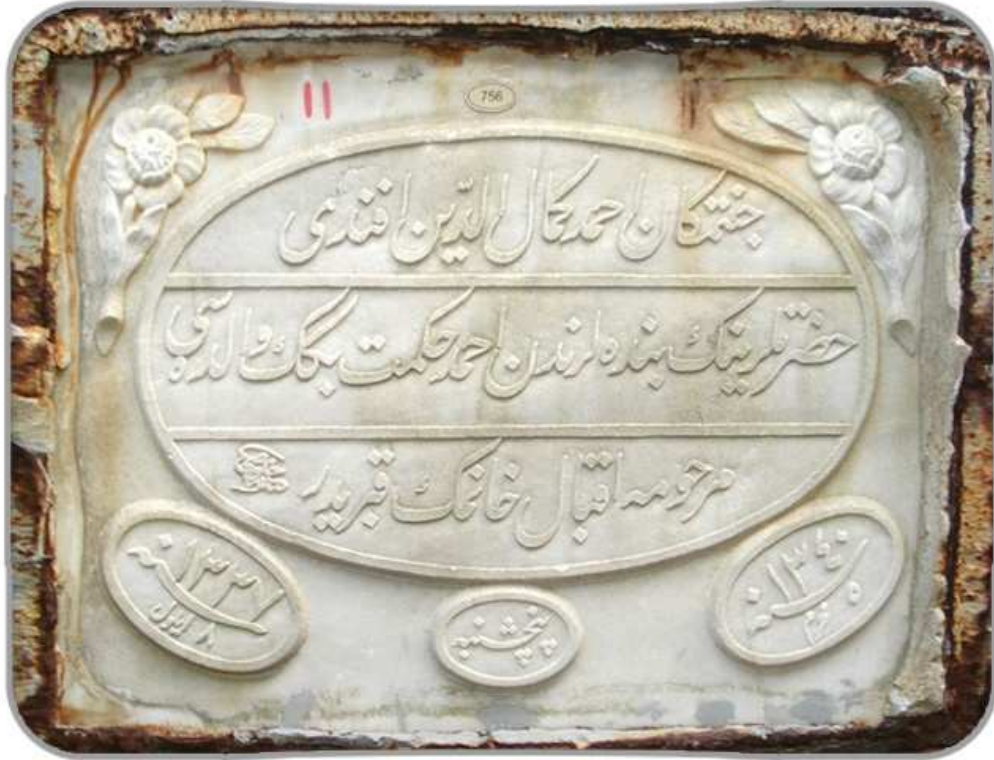 11
756
جنتمكان احمد كمال الدّين افندى
حضرتلرينك بنده لرندن احمد حكمت بگك والده سى
مرحومه اقبال خانمك قبريدر
سنه ١٣٤٠
٥ محرم
پنچشنبه
سنه ١٣٣٧
٨ ايلول